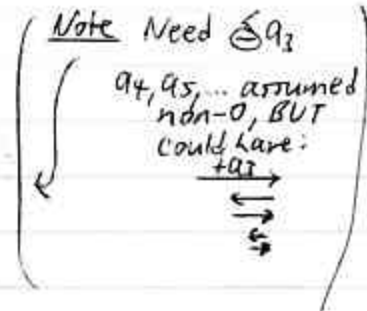 Note Need ⊖a₃
a₄, a₅, ... assumed
non-0, BUT
could have:
+a₃